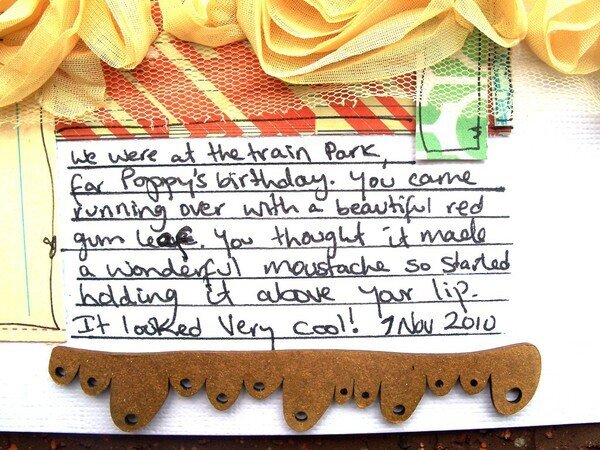 We were at the train Park,
for Poppy's birthday. You came
running over with a beautiful red
gum leaf. You thought it made
a wonderful moustache so started
holding it above your lip.
It looked very cool! 7 Nov 2010